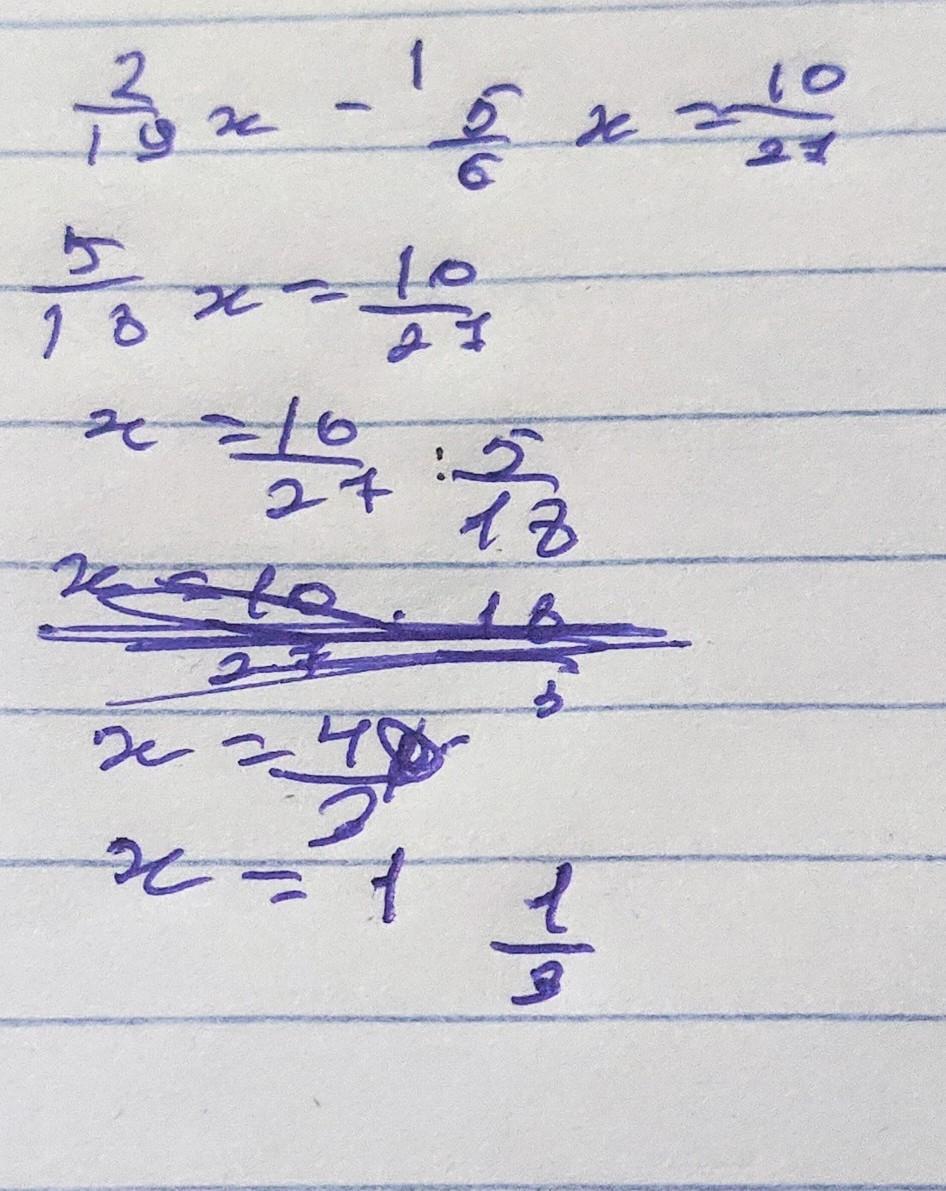 2/19 x - 1 5/6 x = 10/27
5/18 x = 10/27
x = 10/27 : 5/18
x = 10/27 . 18/5
x = 4/3
x = 1 1/3